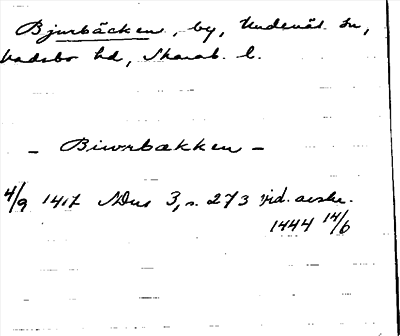 Bjurbäcken, by, Undenäs sn,
Vadsbo hd, Skarab. l.
- Biwrbækken -
4/9 1417 NDns 3, s. 273 vid. avskr.
1444 14/6